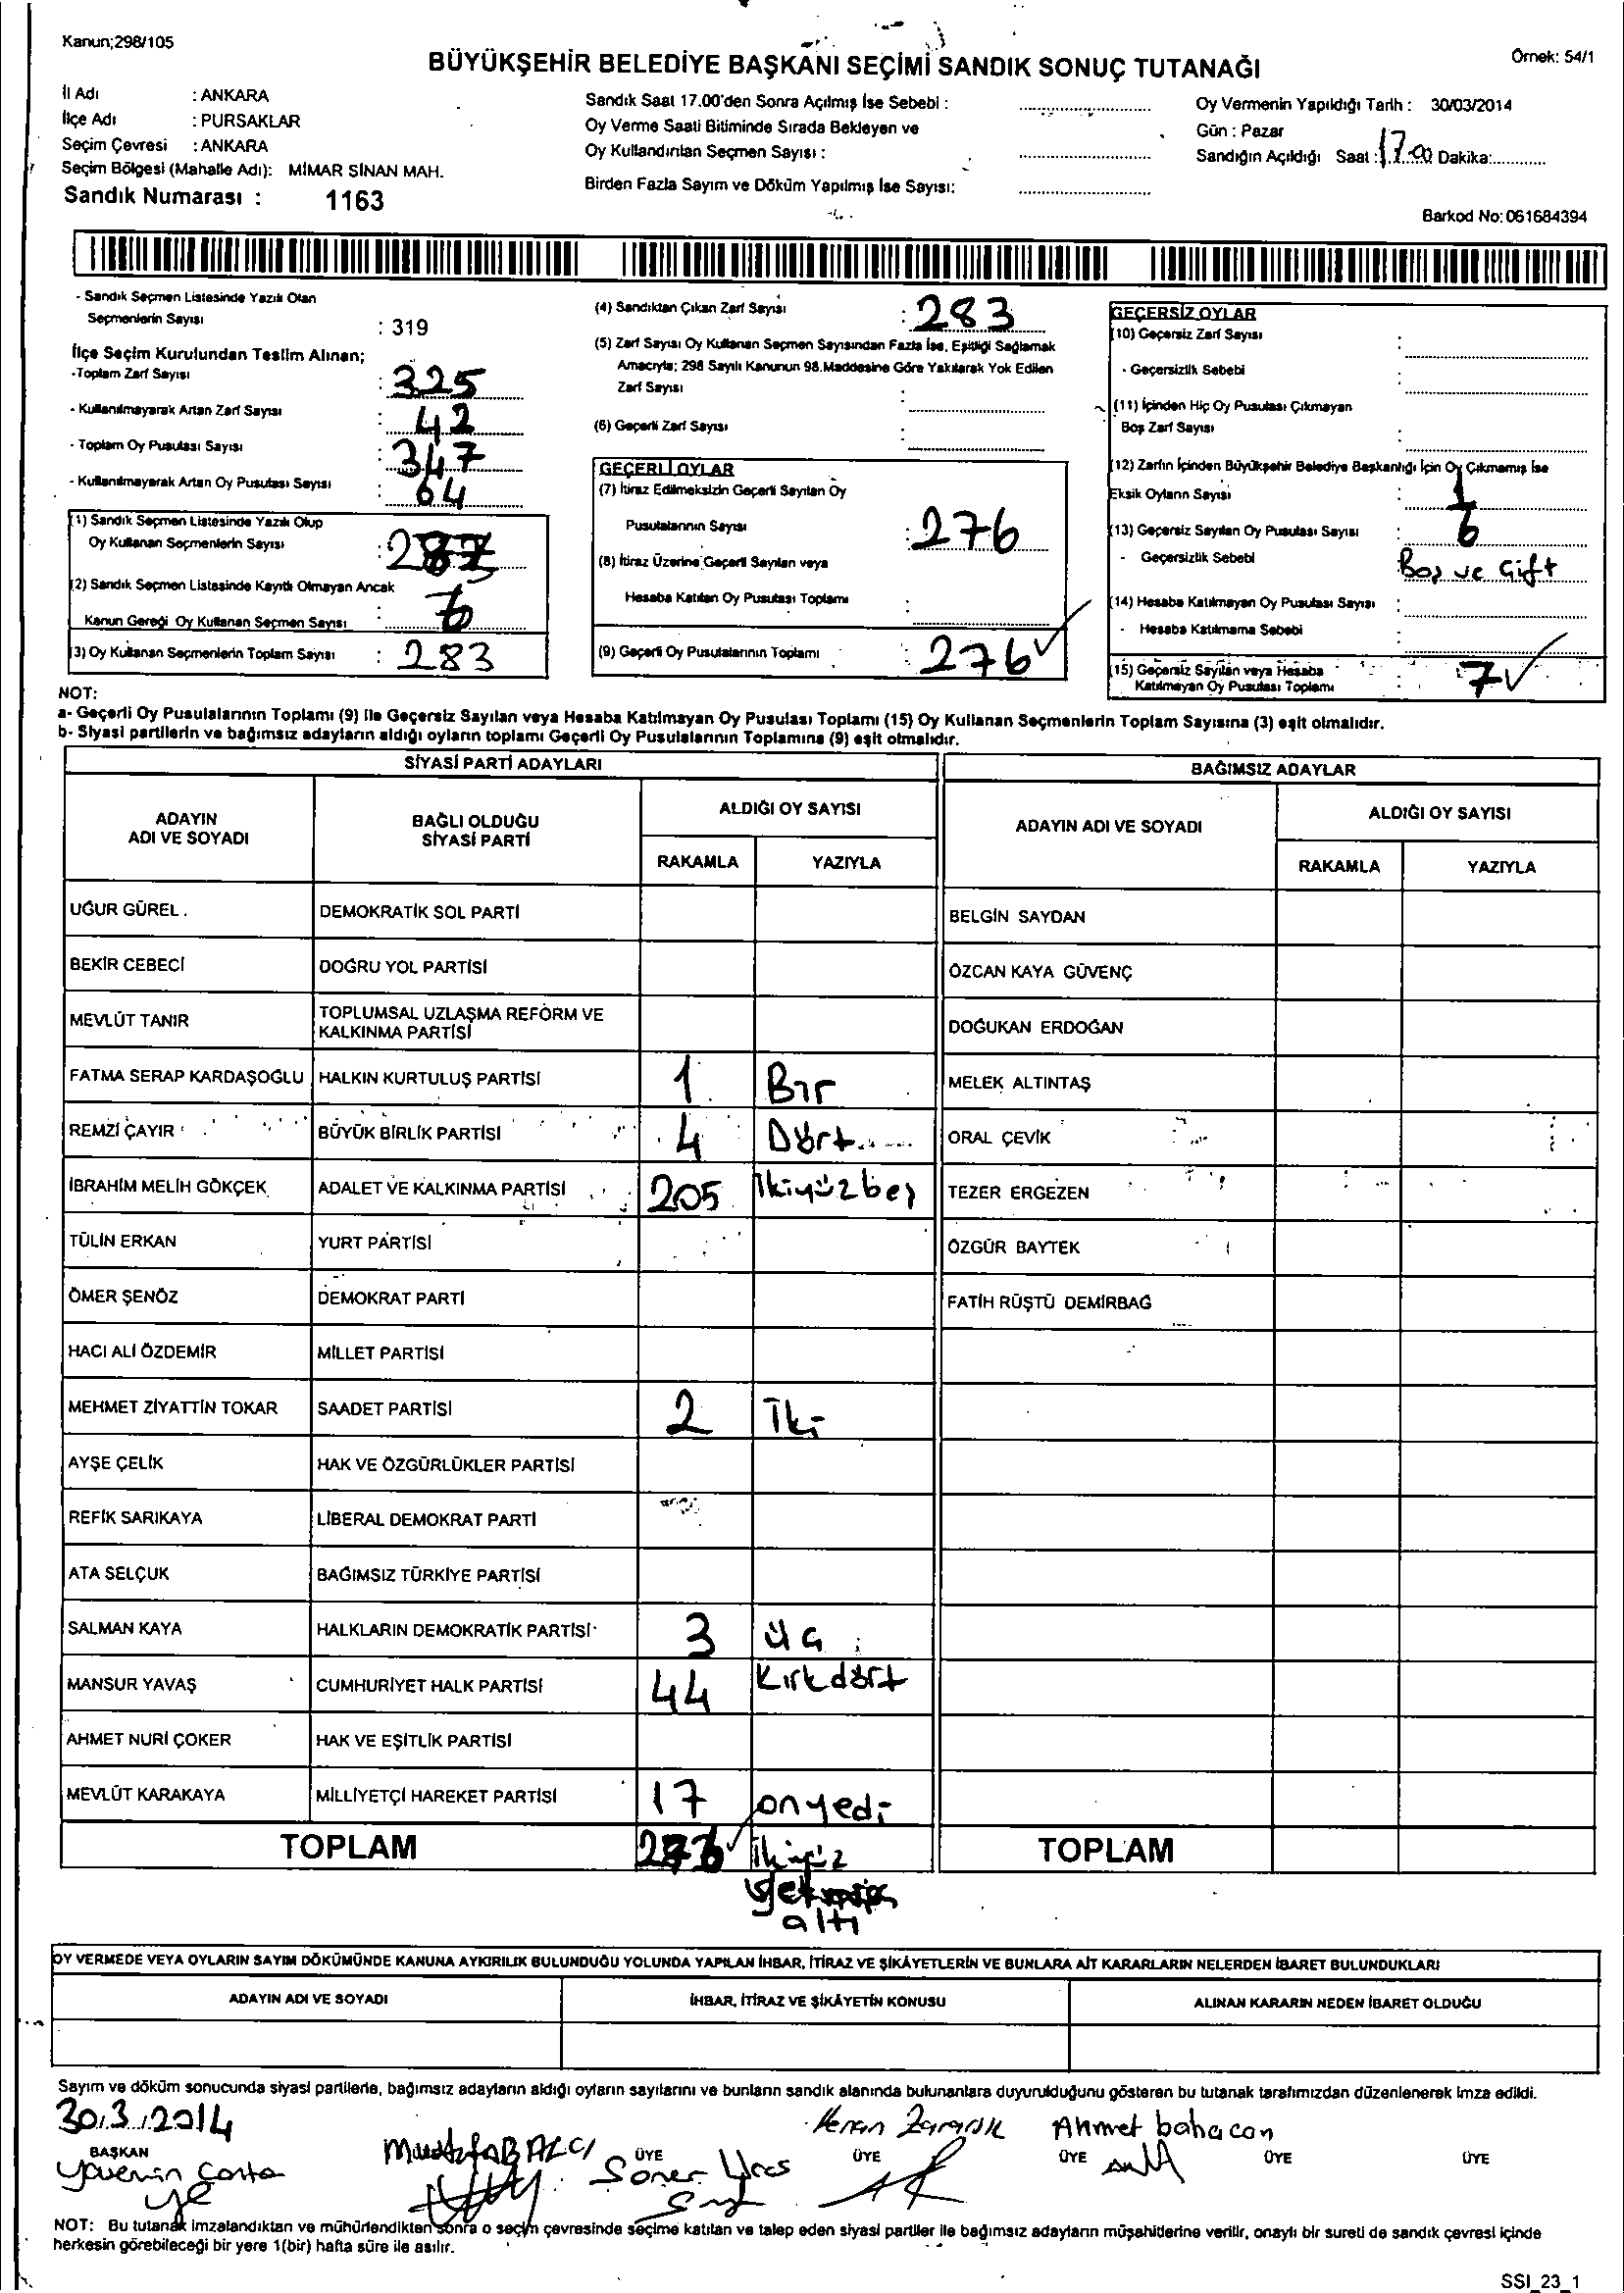 Kanun;298/105
BÜYÜKŞEHİR BELEDİYE BAŞKANI SEÇİMİ SANDIK SONUÇ TUTANAĞI
Örnek: 54/1
İl Adı : ANKARA
İlçe Adı : PURSAKLAR
Seçim Çevresi : ANKARA
Seçim Bölgesi (Mahalle Adı): MİMAR SİNAN MAH.
Sandık Numarası : 1163
Sandık Saat 17.00'den Sonra Açılmış İse Sebebi :
Oy Verme Saati Bitiminde Sırada Bekleyen ve
Oy Kullandırılan Seçmen Sayısı :
Birden Fazla Sayım ve Döküm Yapılmış İse Sayısı:
Oy Vermenin Yapıldığı Tarih : 30/03/2014
Gün : Pazar
Sandığın Açıldığı Saat : 17.00 Dakika:
Barkod No: 061684394
- Sandık Seçmen Listesinde Yazılı Olan
Seçmenlerin Sayısı : 319
İlçe Seçim Kurulundan Teslim Alınan;
-Toplam Zarf Sayısı : 325
- Kullanılmayarak Artan Zarf Sayısı : 42
- Toplam Oy Pusulası Sayısı : 347
- Kullanılmayarak Artan Oy Pusulası Sayısı : 64
(1) Sandık Seçmen Listesinde Yazılı Olup
Oy Kullanan Seçmenlerin Sayısı :
(2) Sandık Seçmen Listesinde Kayıtlı Olmayan Ancak
Kanun Gereği Oy Kullanan Seçmen Sayısı : 6
(3) Oy Kullanan Seçmenlerin Toplam Sayısı : 283
(4) Sandıktan Çıkan Zarf Sayısı : 283
(5) Zarf Sayısı Oy Kullanan Seçmen Sayısından Fazla İse, Eşitliği Sağlamak
Amacıyla; 298 Sayılı Kanunun 98.Maddesine Göre Yakılarak Yok Edilen
Zarf Sayısı :
(6) Geçerli Zarf Sayısı :
GEÇERLİ OYLAR
(7) İtiraz Edilmeksizin Geçerli Sayılan Oy
Pusulalarının Sayısı : 276
(8) İtiraz Üzerine Geçerli Sayılan veya
Hesaba Katılan Oy Pusulası Toplamı :
(9) Geçerli Oy Pusulalarının Toplamı : 276 ✓
GEÇERSİZ OYLAR
(10) Geçersiz Zarf Sayısı :
- Geçersizlik Sebebi :
(11) İçinden Hiç Oy Pusulası Çıkmayan
Boş Zarf Sayısı :
(12) Zarfın İçinden Büyükşehir Belediye Başkanlığı İçin Oy Çıkmamış İse
Eksik Oyların Sayısı : 1
(13) Geçersiz Sayılan Oy Pusulası Sayısı : 6
- Geçersizlik Sebebi Boş ve Çift
(14) Hesaba Katılmayan Oy Pusulası Sayısı :
- Hesaba Katılmama Sebebi :
(15) Geçersiz Sayılan veya Hesaba
Katılmayan Oy Pusulası Toplamı : 7 ✓
NOT:
a- Geçerli Oy Pusulalarının Toplamı (9) ile Geçersiz Sayılan veya Hesaba Katılmayan Oy Pusulası Toplamı (15) Oy Kullanan Seçmenlerin Toplam Sayısına (3) eşit olmalıdır.
b- Siyasi partilerin ve bağımsız adayların aldığı oyların toplamı Geçerli Oy Pusulalarının Toplamına (9) eşit olmalıdır.
SİYASİ PARTİ ADAYLARI
ADAYIN ADI VE SOYADI BAĞLI OLDUĞU SİYASİ PARTİ ALDIĞI OY SAYISI
RAKAMLA YAZIYLA
UĞUR GÜREL DEMOKRATİK SOL PARTİ
BEKİR CEBECİ DOĞRU YOL PARTİSİ
MEVLÜT TANIR TOPLUMSAL UZLAŞMA REFORM VE KALKINMA PARTİSİ
FATMA SERAP KARDAŞOĞLU HALKIN KURTULUŞ PARTİSİ 1 Bir
REMZİ ÇAYIR BÜYÜK BİRLİK PARTİSİ 4 Dört
İBRAHİM MELİH GÖKÇEK ADALET VE KALKINMA PARTİSİ 205 İkiyüzbeş
TÜLİN ERKAN YURT PARTİSİ
ÖMER ŞENÖZ DEMOKRAT PARTİ
HACI ALİ ÖZDEMİR MİLLET PARTİSİ
MEHMET ZİYATTİN TOKAR SAADET PARTİSİ 2 İki
AYŞE ÇELİK HAK VE ÖZGÜRLÜKLER PARTİSİ
REFİK SARIKAYA LİBERAL DEMOKRAT PARTİ
ATA SELÇUK BAĞIMSIZ TÜRKİYE PARTİSİ
SALMAN KAYA HALKLARIN DEMOKRATİK PARTİSİ 3 üç
MANSUR YAVAŞ CUMHURİYET HALK PARTİSİ 44 Kırkdört
AHMET NURİ ÇOKER HAK VE EŞİTLİK PARTİSİ
MEVLÜT KARAKAYA MİLLİYETÇİ HAREKET PARTİSİ 17 onyedi
TOPLAM 276 ✓ İkiyüz
yetmiş
altı
BAĞIMSIZ ADAYLAR
ADAYIN ADI VE SOYADI ALDIĞI OY SAYISI
RAKAMLA YAZIYLA
BELGİN SAYDAN
ÖZCAN KAYA GÜVENÇ
DOĞUKAN ERDOĞAN
MELEK ALTINTAŞ
ORAL ÇEVİK
TEZER ERGEZEN
ÖZGÜR BAYTEK
FATİH RÜŞTÜ DEMİRBAĞ
TOPLAM
OY VERMEDE VEYA OYLARIN SAYIM DÖKÜMÜNDE KANUNA AYKIRILIK BULUNDUĞU YOLUNDA YAPILAN İHBAR, İTİRAZ VE ŞİKÂYETLERİN VE BUNLARA AİT KARARLARIN NELERDEN İBARET BULUNDUKLARI
ADAYIN ADI VE SOYADI İHBAR, İTİRAZ VE ŞİKÂYETİN KONUSU ALINAN KARARIN NEDEN İBARET OLDUĞU
Sayım ve döküm sonucunda siyasi partilerle, bağımsız adayların aldığı oyların sayılarını ve bunların sandık alanında bulunanlara duyurulduğunu gösteren bu tutanak tarafımızdan düzenlenerek imza edildi.
30.3.2014
BAŞKAN
Mustafa BALCI
ÜYE
Soner
ÜYE
Ahmet
ÜYE
ÜYE
ÜYE
NOT: Bu tutanak imzalandıktan ve mühürlendikten sonra o seçim çevresinde seçime katılan ve talep eden siyasi partiler ile bağımsız adayların müşahitlerine verilir, onaylı bir sureti de sandık çevresi içinde
herkesin görebileceği bir yere 1(bir) hafta süre ile asılır.
SSI_23_1